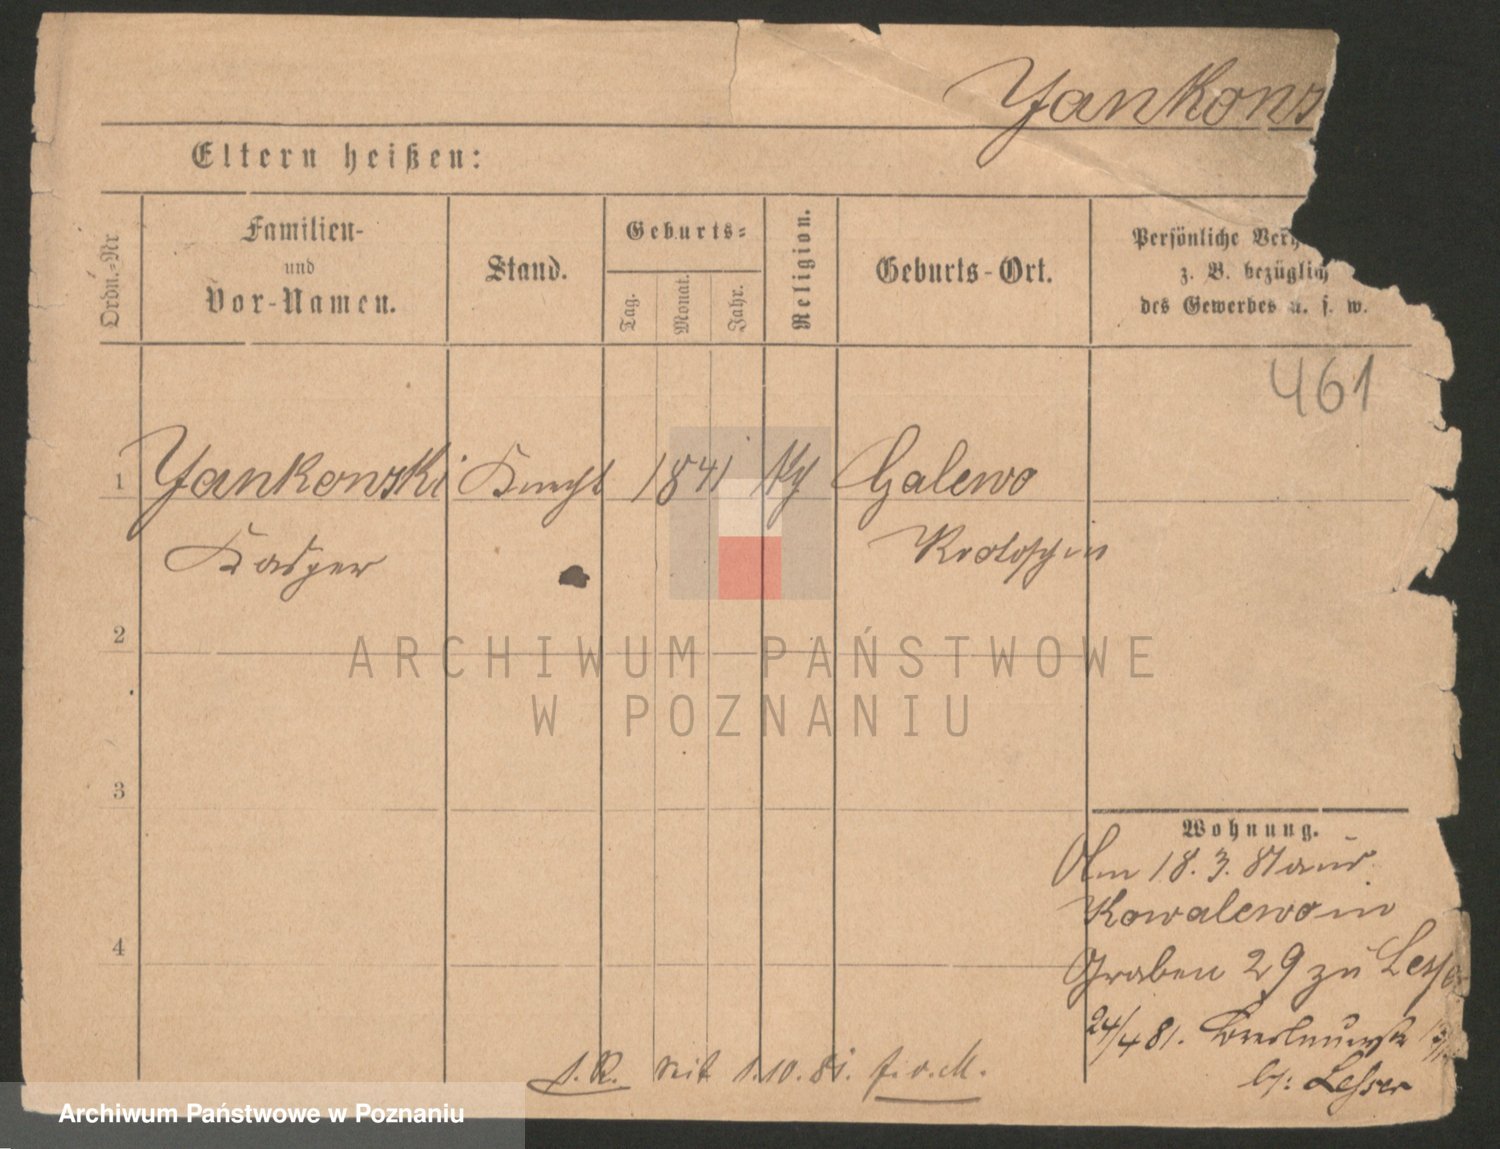 Yankows
Eltern heißen:
Ordn.-Nr
Familien-
und
Vor-Namen.
Stand.
Geburts-
Tag.
Monat.
Jahr.
Religion.
Geburts-Ort.
Persönliche Verh
z. B. bezüglich
des Gewerbes u. s. w.
461
1 Yankowski Knecht 1841 Galewo
Kasper Krotoschin
2
3
4
Wohnung.
Am 18. 3. 81 aus
Kowalewo in
Graben 29 zu Lesser
24/4 81.
bei Lesser
s. R. seit 1.10.81. f. v. M.
ARCHIWUM PAŃSTWOWE
W POZNANIU
Archiwum Państwowe w Poznaniu